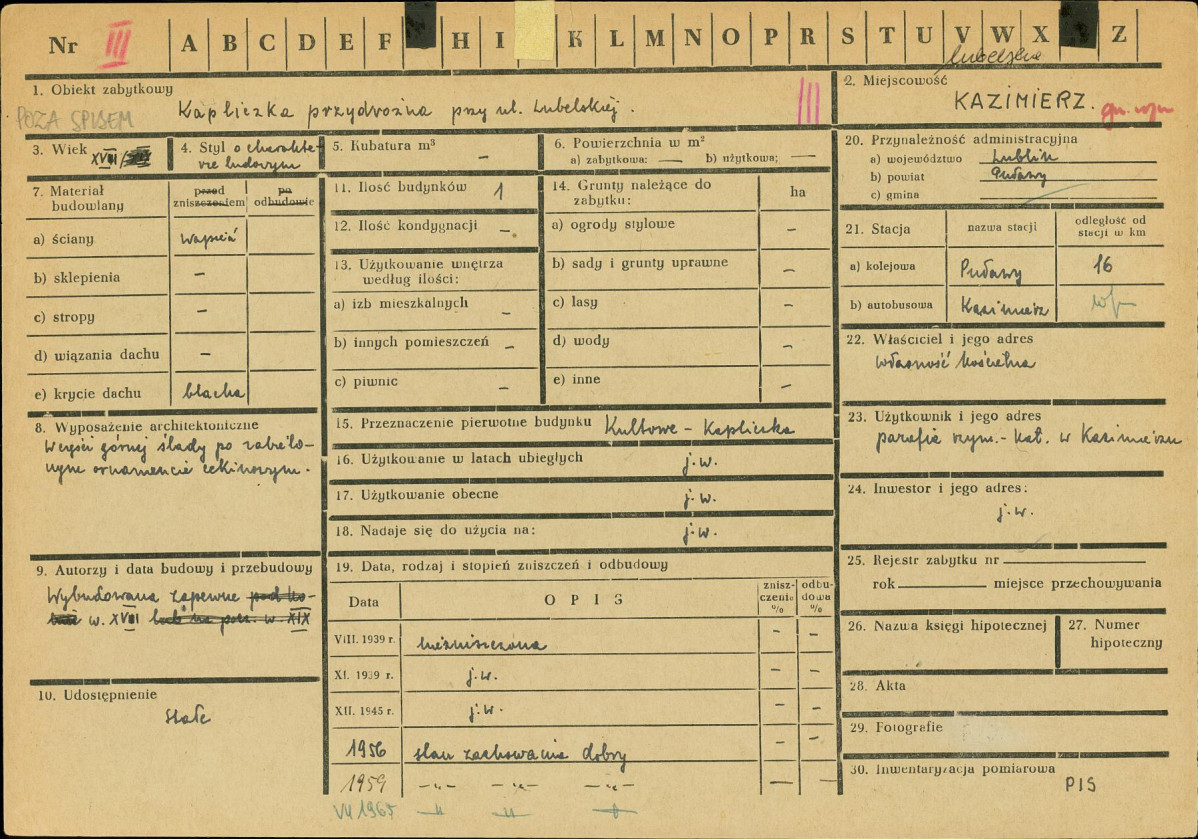 Nr III A B C D E F H I K L M N O P R S T U V W X Z
1. Obiekt zabytkowy
Kapliczka przydrożna przy ul. Lubelskiej.
III
POZA SPISEM
2. Miejscowość
Lubelska
KAZIMIERZ.
3. Wiek XVIII
4. Styl o charakte-
rze ludowym
5. Kubatura m³ —
6. Powierzchnia w m²
a) zabytkowa: — b) użytkowa; —
7. Materiał
budowlany
przed
zniszczeniem
po
odbudowie
a) ściany wapień
b) sklepienia —
c) stropy —
d) wiązania dachu —
e) krycie dachu blacha
8. Wyposażenie architektoniczne
W części górnej ślady po zabielo-
nym ornamencie cekinowym.
9. Autorzy i data budowy i przebudowy
Wybudowana zapewne
w. XVIII lub na pocz. w. XIX
10. Udostępnienie
stałe
11. Ilość budynków 1
12. Ilość kondygnacji —
13. Użytkowanie wnętrza
według ilości:
a) izb mieszkalnych —
b) innych pomieszczeń —
c) piwnic —
14. Grunty należące do
zabytku:
ha
a) ogrody stylowe —
b) sady i grunty uprawne —
c) lasy —
d) wody —
e) inne —
15. Przeznaczenie pierwotne budynku Kultowe - Kapliczka
16. Użytkowanie w latach ubiegłych j.w.
17. Użytkowanie obecne j.w.
18. Nadaje się do użycia na: j.w.
19. Data, rodzaj i stopień zniszczeń i odbudowy
Data
OPIS
znisz-
czenie
%
odbu-
dowa
%
VIII. 1939 r. niezniszczona — —
XI. 1939 r. j.w. — —
XII. 1945 r. j.w. — —
1956 stan zachowania dobry — —
1959 -„- -„- -„- — —
VII 1965 -„- -„- -„-
20. Przynależność administracyjna
a) województwo Lublin
b) powiat Puławy
c) gmina
21. Stacja
nazwa stacji
odległość od
stacji w km
a) kolejowa Puławy 16
b) autobusowa Kazimierz
22. Właściciel i jego adres
własność kościelna
23. Użytkownik i jego adres
parafia rzym.-kat. w Kazimierzu
24. Inwestor i jego adres:
j.w.
25. Rejestr zabytku nr
rok miejsce przechowywania
26. Nazwa księgi hipotecznej
27. Numer
hipoteczny
28. Akta
29. Fotografie
30. Inwentaryzacja pomiarowa
PIS